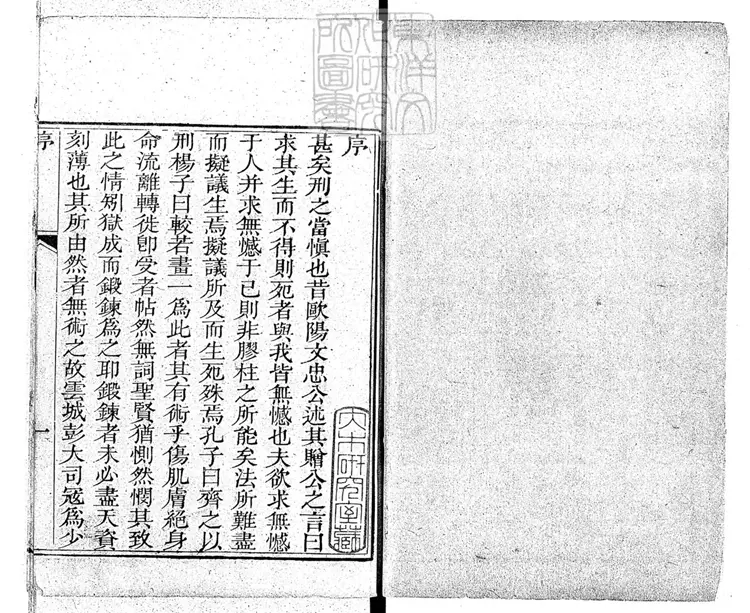 東洋文
化研究
所圖書
序
甚矣刑之當慎也昔歐陽文忠公述其贈公之言曰
求其生而不得則死者與我皆無憾也夫欲求無憾
于人并求無憾于已則非膠柱之所能矣法所難盡
而擬議生焉擬議所及而生死殊焉孔子曰齊之以
刑楊子曰較若畫一為此者其有術乎傷肌膚絕身
命流離轉徙卽受者帖然無詞聖賢猶惻然憫其致
此之情矧獄成而鍛鍊為之耶鍛鍊者未必盡天資
刻薄也其所由然者無術之故雲城彭大司寇為少
序
一
大木研究室藏